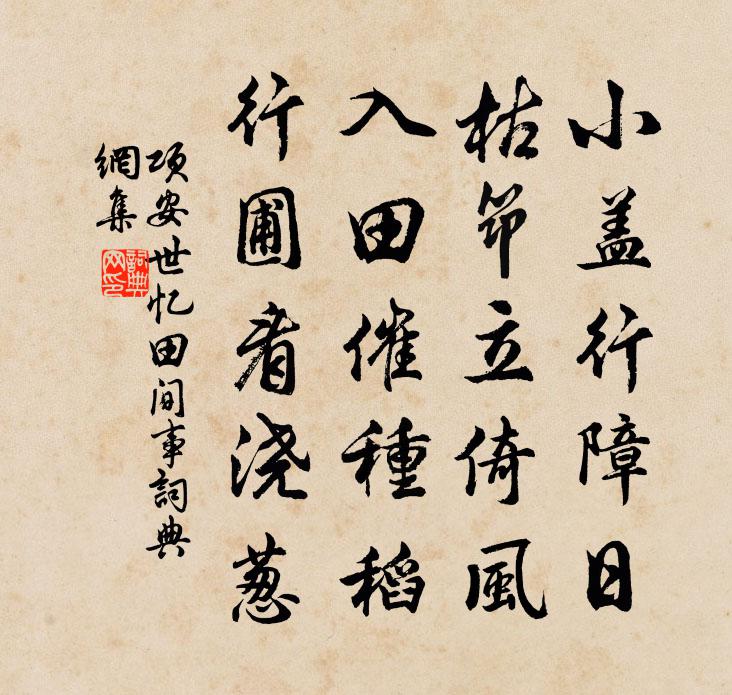 小盖行障日
枯笻立倚風
入田催種稻
行圃看浇葱
项安世忆田间事詞典
網集
詞典
网印